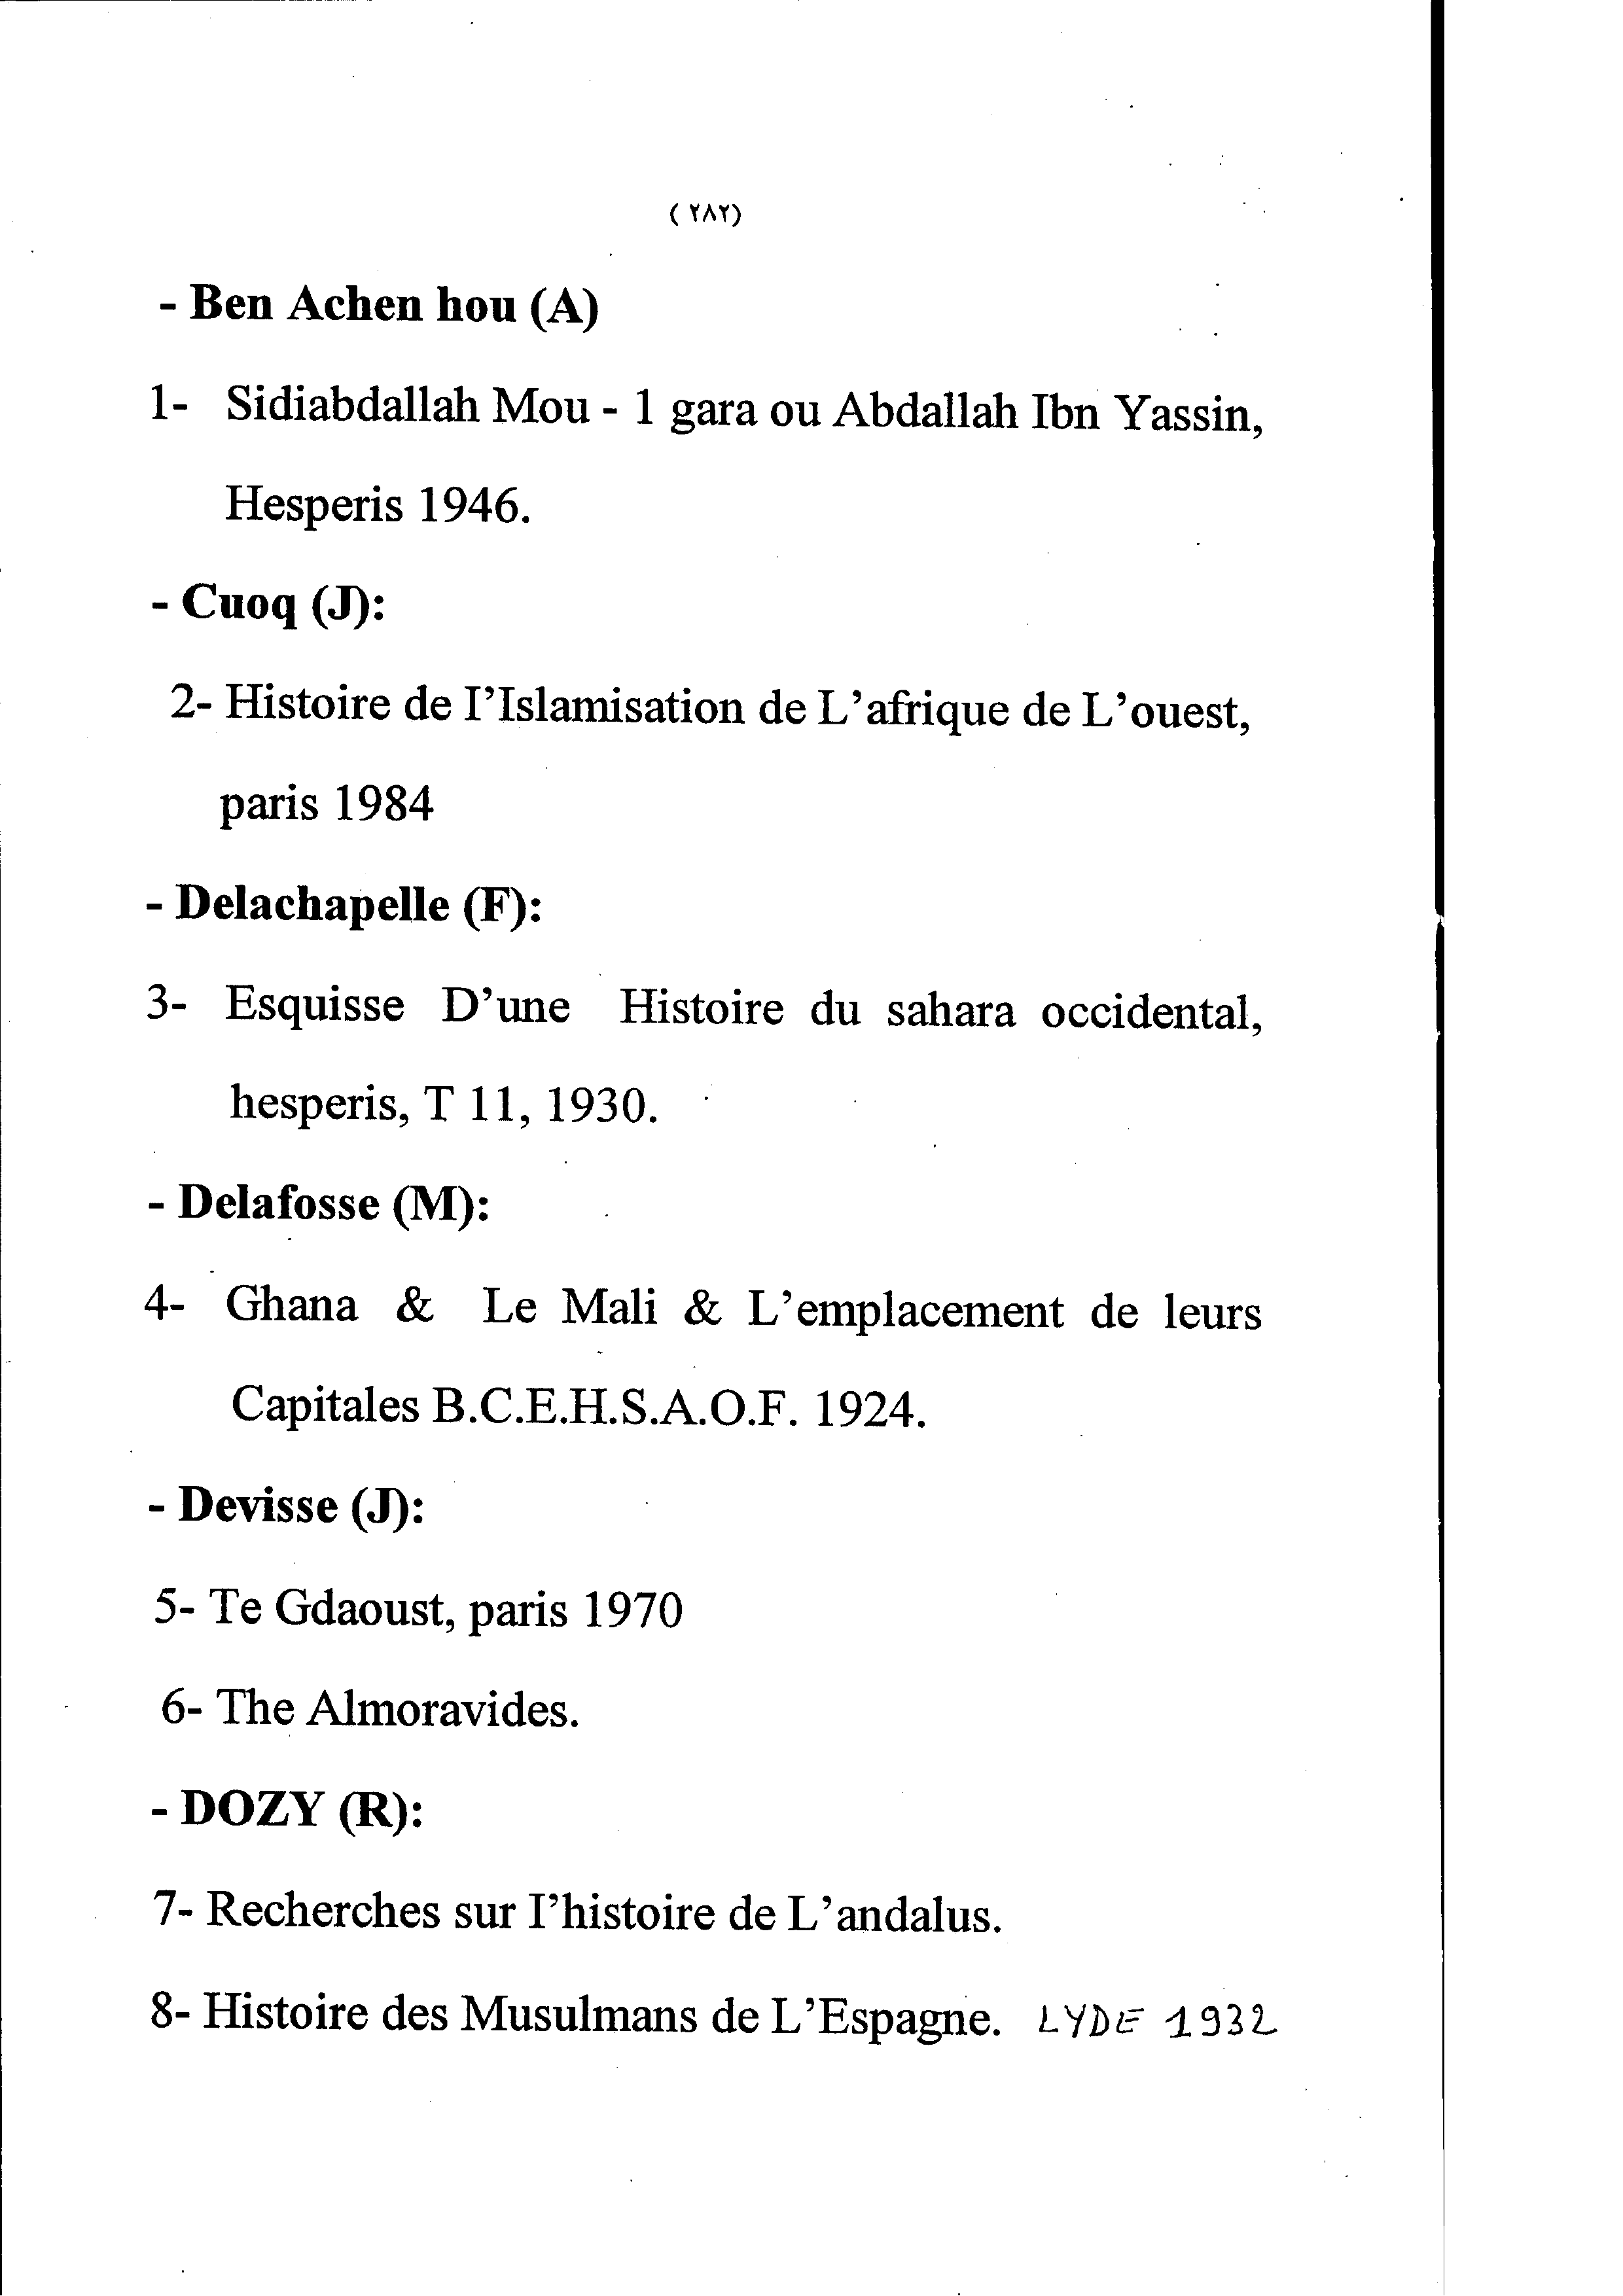 (٢٨٢)
- Ben Achen hou (A)
1- Sidiabdallah Mou - 1 gara ou Abdallah Ibn Yassin,
Hesperis 1946.
- Cuoq (J):
2- Histoire de I'Islamisation de L'afrique de L'ouest,
paris 1984
- Delachapelle (F):
3- Esquisse D'une Histoire du sahara occidental,
hesperis, T 11, 1930.
- Delafosse (M):
4- Ghana & Le Mali & L'emplacement de leurs
Capitales B.C.E.H.S.A.O.F. 1924.
- Devisse (J):
5- Te Gdaoust, paris 1970
6- The Almoravides.
- DOZY (R):
7- Recherches sur I'histoire de L'andalus.
8- Histoire des Musulmans de L'Espagne. LYDE 1932